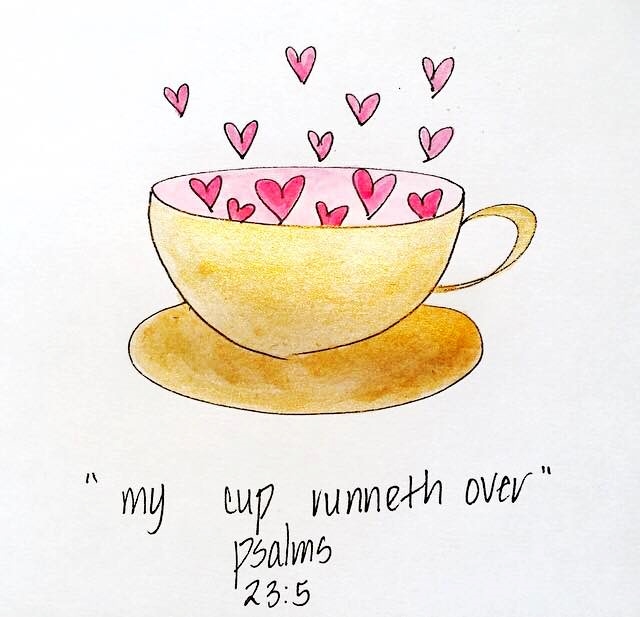 "my cup runneth over"
psalms
23:5